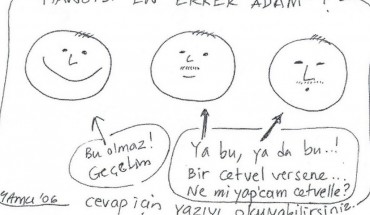 HANGİSİ EN ERKEK ADAM?
Bu olmaz!
Geçelim
Ya bu, ya da bu...!
Bir cetvel versene...
Ne mi yap'cam cetvelle?
YAMU '06
cevap için yazıyı okuyabilirsiniz.